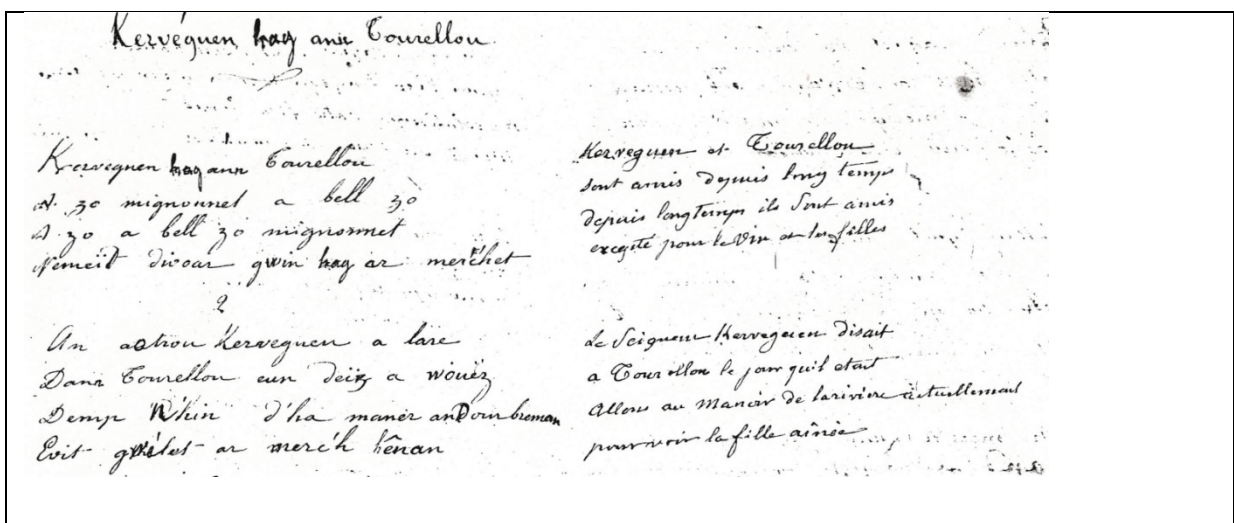 Kervéguen hag ann Tourellou
Kerveguen hag ann Tourellou
A zo mignounet a bell zo
A zo a bell zo mignonnet
Nemeït divoar gwin hag ar merc'het
2
An aotrou Kerveguen a lare
Dann Tourellou eun deiz a wouëz
Demp d'ha manér an Dour breman
Evit gwélet ar merc'h hênan
Kerveguen et Tourellou
sont amis depuis long temps
depuis longtemps ils sont amis
excepté pour le vin et les filles
Le Seigneur Kerveguen disait
a Tourellou le jour qu'il etait
Allons au Manoir de lariviere actuellement
pour voir la fille aînée